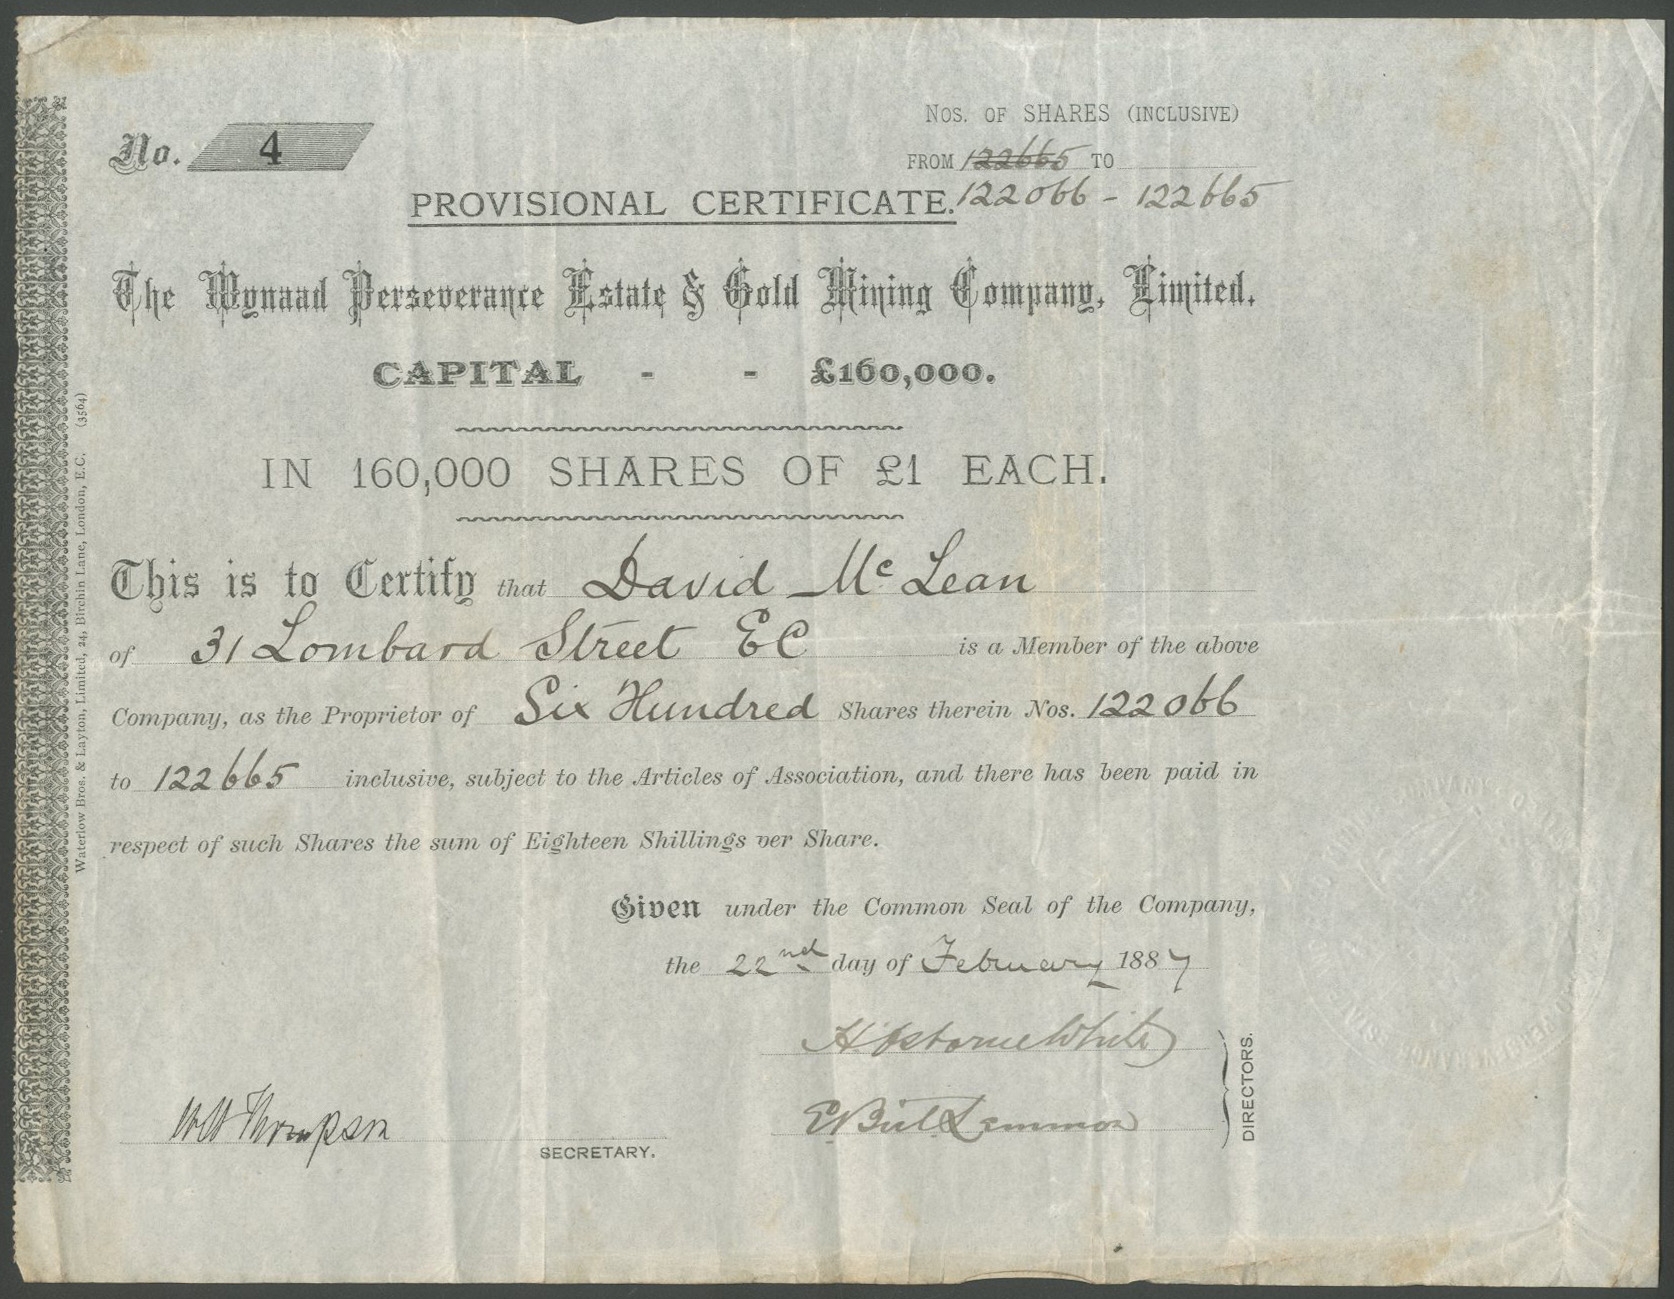 Nos. OF SHARES (INCLUSIVE)
No. 4
FROM 122665 TO
PROVISIONAL CERTIFICATE. 122066 - 122665
The Wynaad Perseverance Estate & Gold Mining Company, Limited.
CAPITAL - - £160,000.
IN 160,000 SHARES OF £1 EACH.
This is to Certify that David McLean
of 31 Lombard Street EC is a Member of the above
Company, as the Proprietor of Six Hundred Shares therein Nos. 122066
to 122665 inclusive, subject to the Articles of Association, and there has been paid in
respect of such Shares the sum of Eighteen Shillings per Share.
Given under the Common Seal of the Company,
the 22nd day of February 1887
H. Osborne White
E Birt Lemmon
DIRECTORS.
W W Thompson
SECRETARY.
Waterlow Bros. & Layton, Limited, 24, Birchin Lane, London, E.C. (3564)